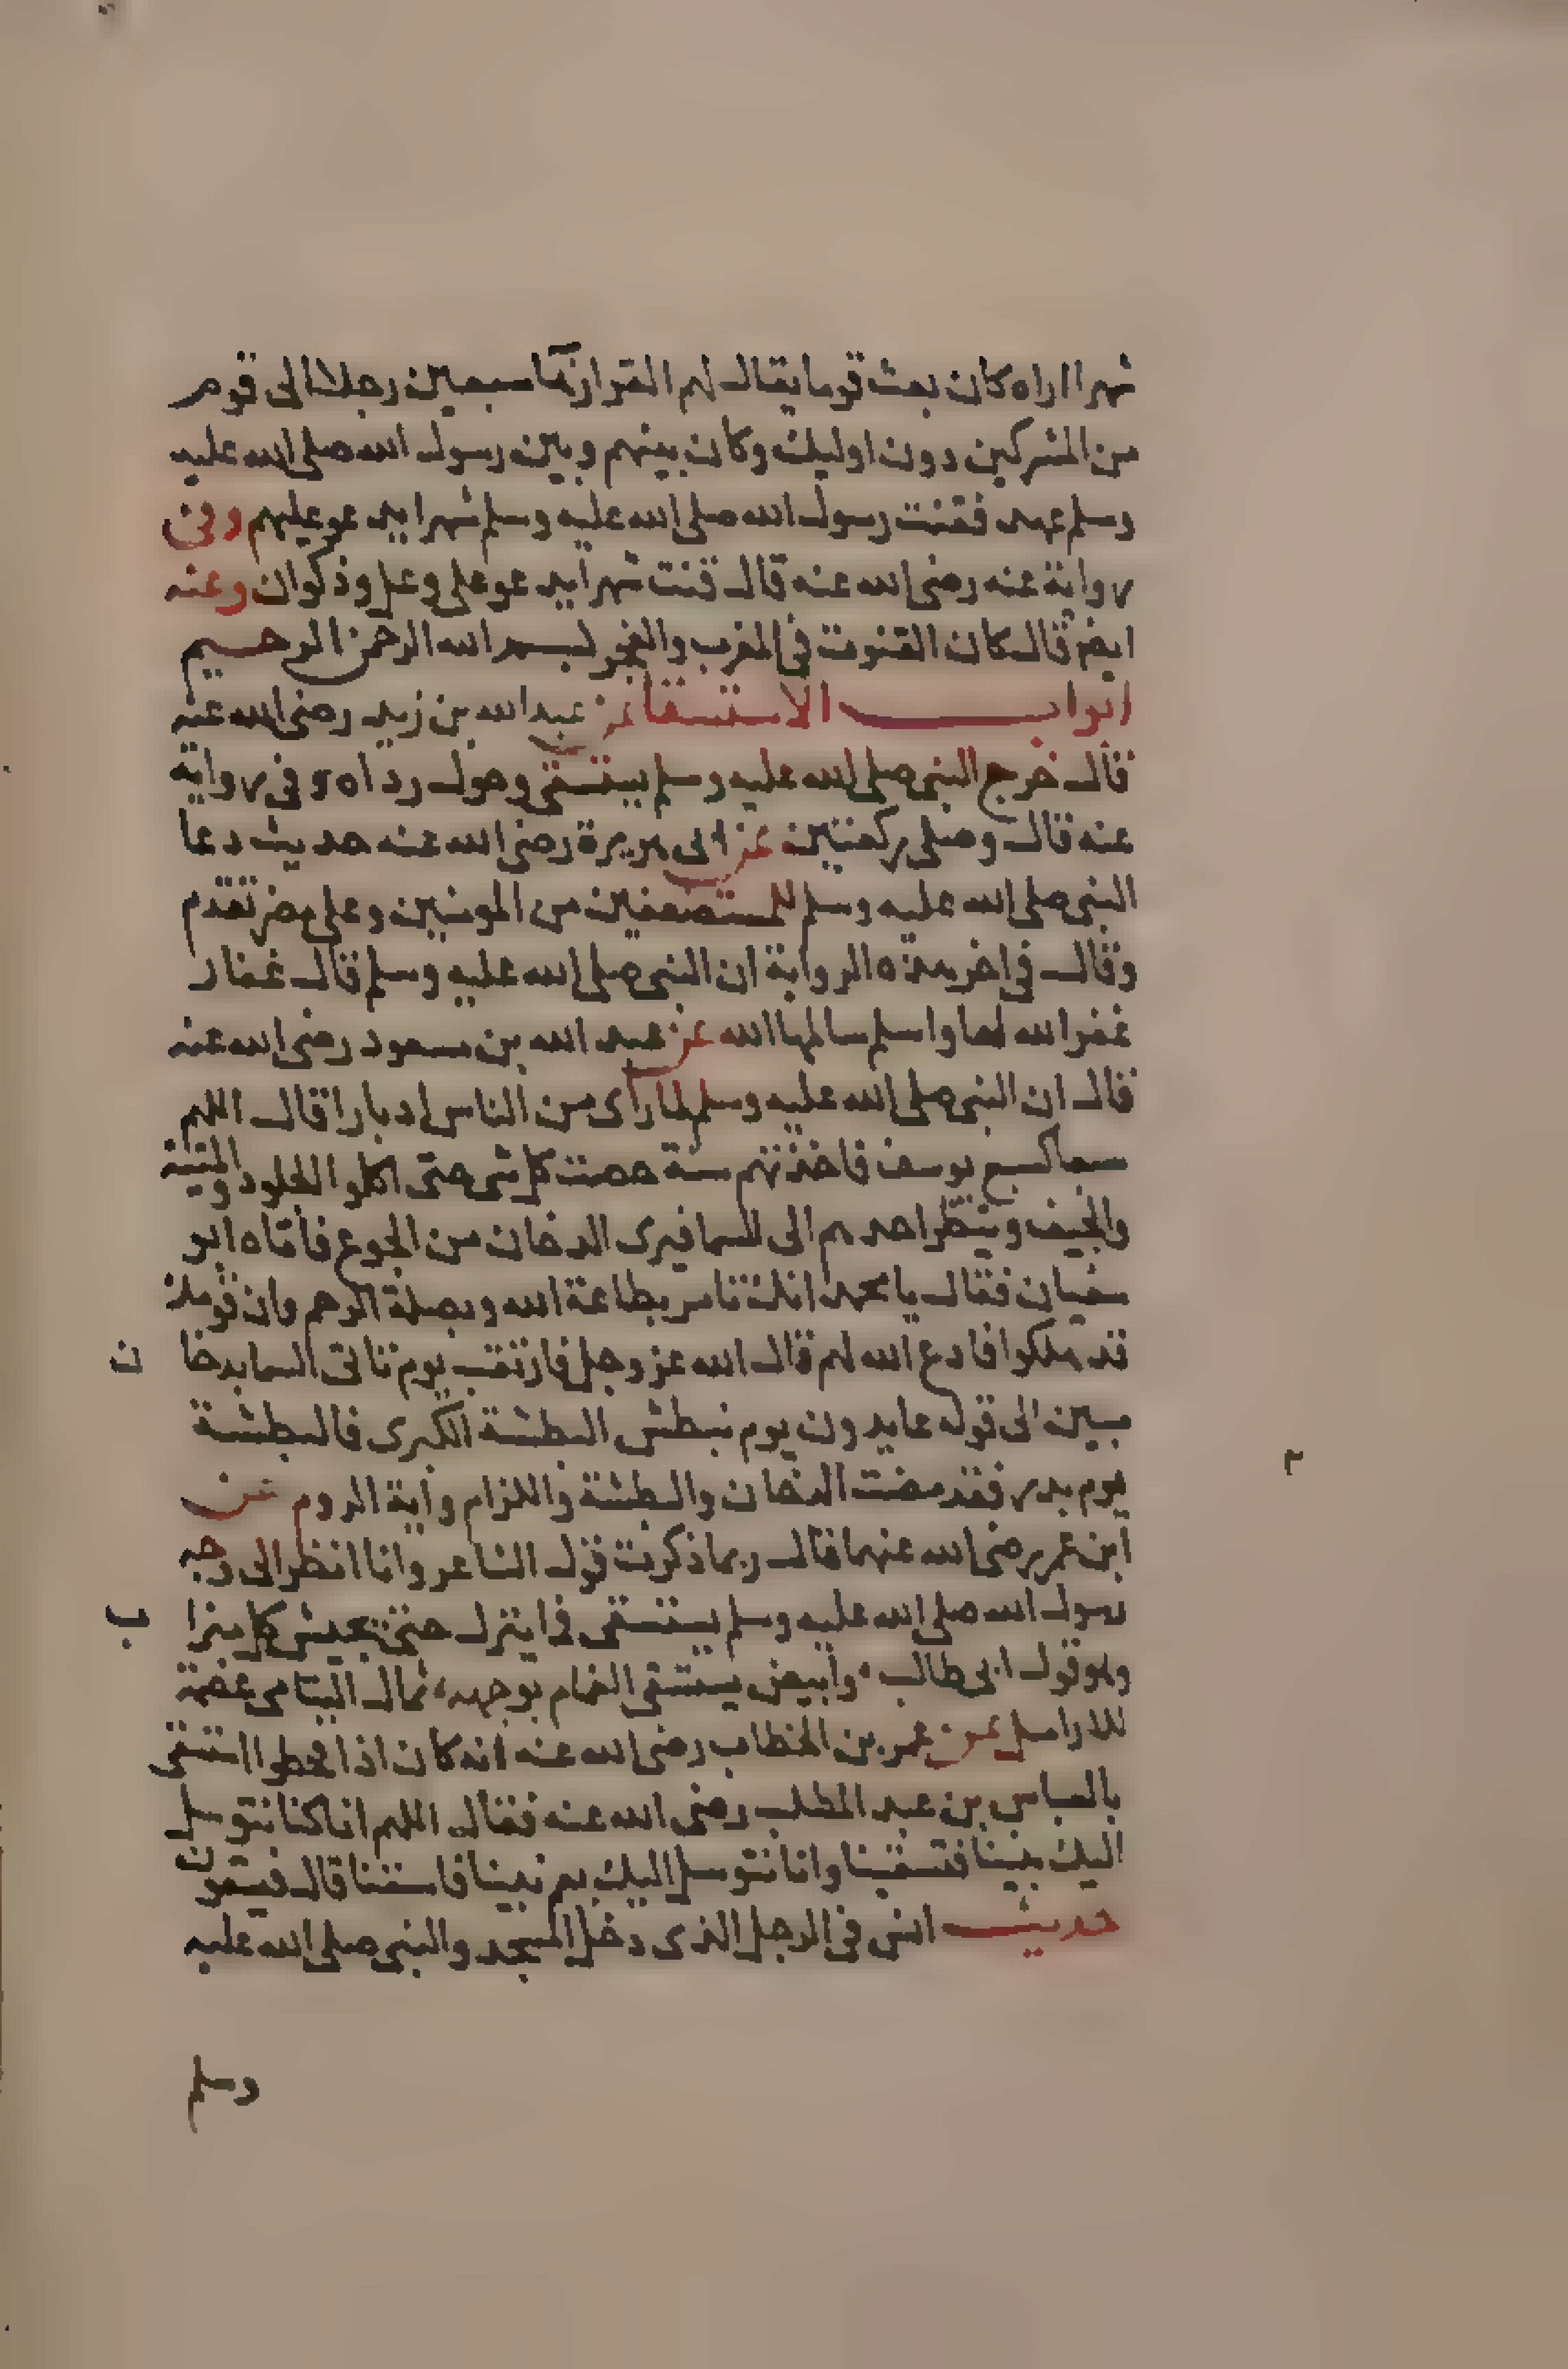 شهرا اراه كان بعث قوما يقال لهم القرا زهآ سبعين رجلا الى قوم
من المشركين دون اوليك وكان بينهم وبين رسول الله صلى الله عليه
وسلم عهد فقنت رسول الله صلى الله عليه وسلم شهرا يدعو عليهم وفى
رواية عنه رضى الله عنه قال قنت شهرا يدعو على رعل وذكوان وعنه
ايضا قال كان القنوت فى المغرب والفجر بسم الله الرحمن الرحيم
ابواب الاستسقا عن عبد الله بن زيد رضى الله عنه
قال خرج النبى صلى الله عليه وسلم يستسقى وحول رداه وفى رواية
عنه قال وصلى ركعتين عن ابى هريرة رضى الله عنه حديث دعا
النبى صلى الله عليه وسلم للمستضعفين من المومنين وعلى مضر تقدم
وقال فى اخر هذه الرواية ان النبى صلى الله عليه وسلم قال غفار
غفر الله لها واسلم سالمها الله عن عبد الله بن مسعود رضى الله عنه
قال ان النبى صلى الله عليه وسلم لما راى من الناس ادبارا قال اللهم
سبعا كسبع يوسف فاخذتهم سنة حصت كل شى حتى اكلوا الجلود والميتة
والجيف وينظر احدهم الى السما فيرى الدخان من الجوع فاتاه ابو
سفيان فقال يا محمد انك تامر بطاعة الله وبصلة الرحم وان قومك
قد هلكوا فادع الله لهم قال الله عز وجل فارتقب يوم تاتى السما بدخا ن
مبين الى قوله عايدون يوم نبطش البطشة الكبرى فالبطشة
يوم بدر فقد مضت الدخان والبطشة واللزام واية الروم عن
ابن عمر رضى الله عنهما قال ربما ذكرت قول الشاعر وانا انظر الى وجه
رسول الله صلى الله عليه وسلم يستسقى فما ينزل حتى يجيش كل ميزا ب
وهو قول ابى طالب وابيض يستسقى الغمام بوجهه ثمال اليتامى عصمة
للارامل عن عمر بن الخطاب رضى الله عنه انه كان اذا قحطوا استسقى
بالعباس بن عبد المطلب رضى الله عنه فقال اللهم انا كنا نتوسل
اليك بنبينا فتسقينا وانا نتوسل اليك بعم نبينا فاسقنا قال فيسقون
حديث انس فى الرجل الذى دخل المسجد والنبى صلى الله عليه
وسلم